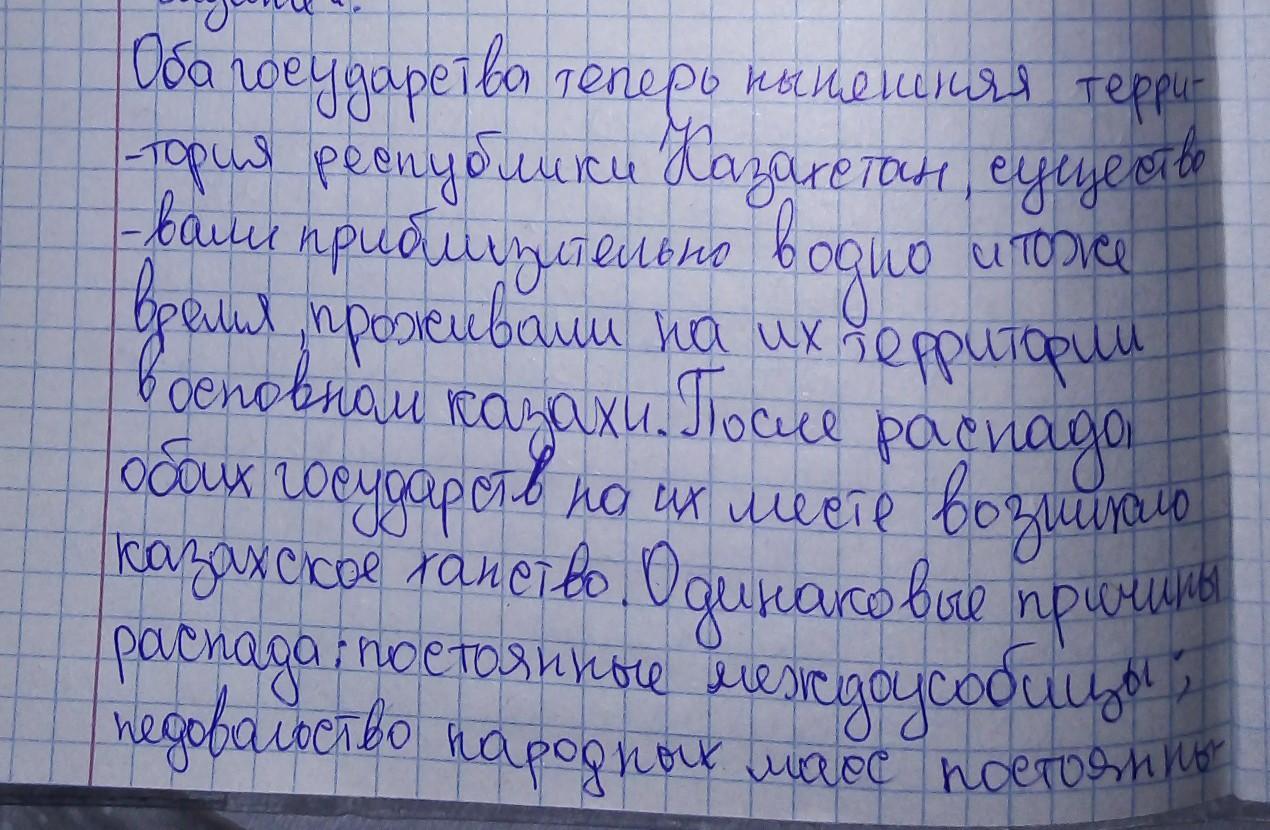 Оба государства теперь нынешняя терри-
-тория республики Казахстан, существо
-вали приблизительно в одно и тоже
время, проживали на их территории
в основном казахи. После распада
обоих государств на их месте возникло
казахское ханство. Одинаковые причины
распада: постоянные междоусобицы;
недовальство народных масс постоянны